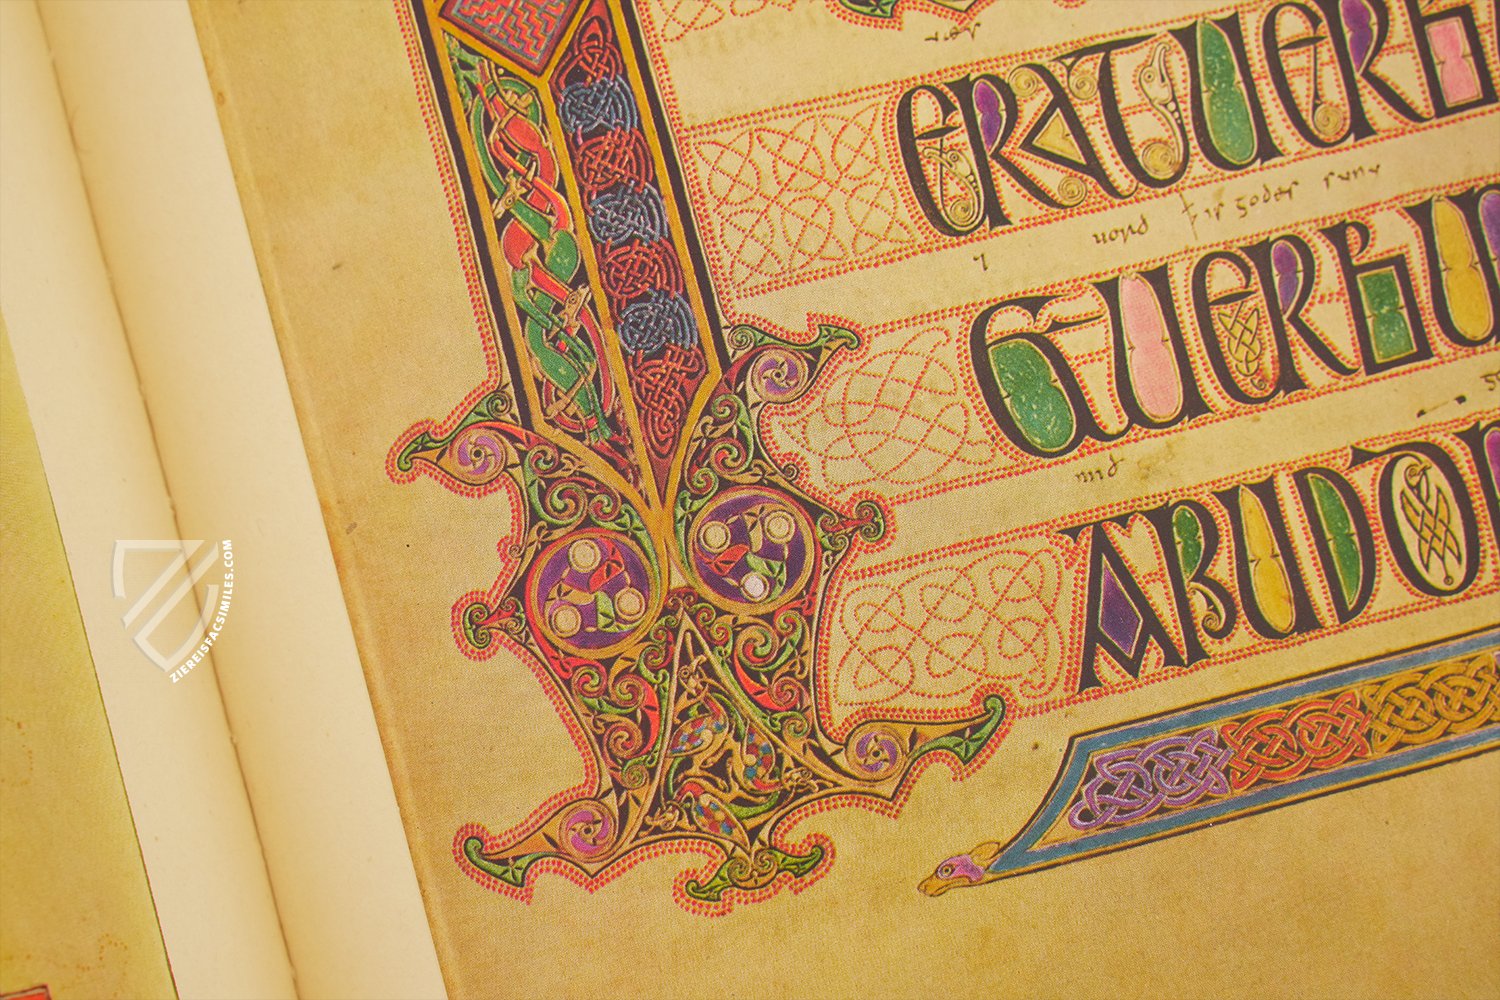 ERATUERB
⁊ uord ꝥ is godes sunu
ETUERBU
mið
APUDD
ZIEREISFACSIMILES.COM